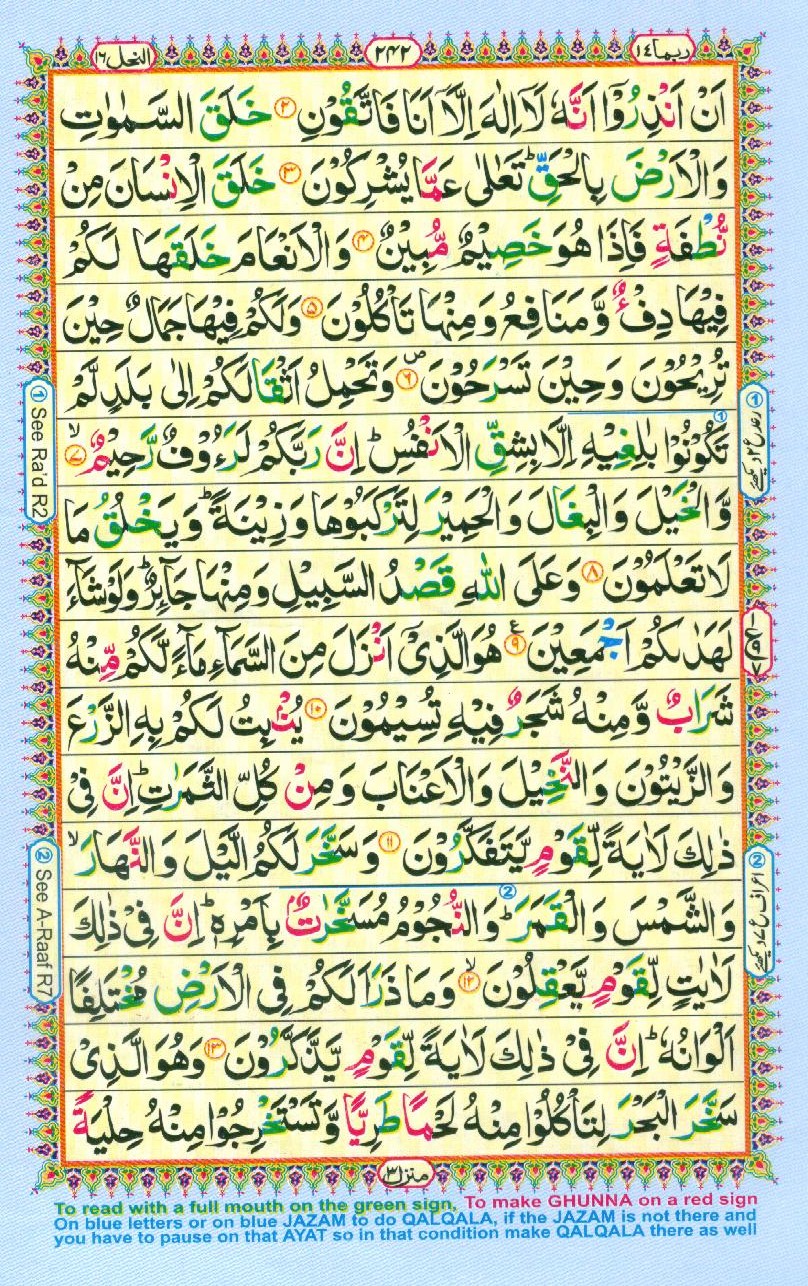 ربما ١٤
٢٤٢
النحل ١٦
اَنْ اَنْذِرُوْۤا اَنَّهٗ لَاۤ اِلٰهَ اِلَّاۤ اَنَا فَاتَّقُوْنِ ۝۲ خَلَقَ السَّمٰوٰتِ
وَالْاَرْضَ بِالْحَقِّ ؕ تَعٰلٰى عَمَّا يُشْرِكُوْنَ ۝۳ خَلَقَ الْاِنْسَانَ مِنْ
نُّطْفَةٍ فَاِذَا هُوَ خَصِيْمٌ مُّبِيْنٌ ۝۴ وَالْاَنْعَامَ خَلَقَهَا لَكُمْ
فِيْهَا دِفْءٌ وَّمَنَافِعُ وَمِنْهَا تَاْكُلُوْنَ ۝۵ وَلَكُمْ فِيْهَا جَمَالٌ حِيْنَ
تُرِيْحُوْنَ وَحِيْنَ تَسْرَحُوْنَ ۝۶ ص وَتَحْمِلُ اَثْقَالَكُمْ اِلٰى بَلَدٍ لَّمْ
تَكُوْنُوْا بٰلِغِيْهِ اِلَّا بِشِقِّ الْاَنْفُسِ ؕ اِنَّ رَبَّكُمْ لَرَءُوْفٌ رَّحِيْمٌ ۝۷ ۙ
وَّالْخَيْلَ وَالْبِغَالَ وَالْحَمِيْرَ لِتَرْكَبُوْهَا وَزِيْنَةً ؕ وَيَخْلُقُ مَا
لَا تَعْلَمُوْنَ ۝۸ وَعَلَى اللّٰهِ قَصْدُ السَّبِيْلِ وَمِنْهَا جَآىِٕرٌ ؕ وَلَوْ شَآءَ
لَهَدٰىكُمْ اَجْمَعِيْنَ ۝۹ ع هُوَ الَّذِيْۤ اَنْزَلَ مِنَ السَّمَآءِ مَآءً لَّكُمْ مِّنْهُ
شَرَابٌ وَّمِنْهُ شَجَرٌ فِيْهِ تُسِيْمُوْنَ ۝۱۰ يُنْۢبِتُ لَكُمْ بِهِ الزَّرْعَ
وَالزَّيْتُوْنَ وَالنَّخِيْلَ وَالْاَعْنَابَ وَمِنْ كُلِّ الثَّمَرٰتِ ؕ اِنَّ فِيْ
ذٰلِكَ لَاٰيَةً لِّقَوْمٍ يَّتَفَكَّرُوْنَ ۝۱۱ وَسَخَّرَ لَكُمُ الَّيْلَ وَالنَّهَارَ ۙ
وَالشَّمْسَ وَالْقَمَرَ ؕ وَالنُّجُوْمُ مُسَخَّرٰتٌۢ بِاَمْرِهٖ ؕ اِنَّ فِيْ ذٰلِكَ
لَاٰيٰتٍ لِّقَوْمٍ يَّعْقِلُوْنَ ۝۱۲ ۙ وَمَا ذَرَاَ لَكُمْ فِي الْاَرْضِ مُخْتَلِفًا
اَلْوَانُهٗ ؕ اِنَّ فِيْ ذٰلِكَ لَاٰيَةً لِّقَوْمٍ يَّذَّكَّرُوْنَ ۝۱۳ وَهُوَ الَّذِيْ
سَخَّرَ الْبَحْرَ لِتَاْكُلُوْا مِنْهُ لَحْمًا طَرِيًّا وَّتَسْتَخْرِجُوْا مِنْهُ حِلْيَةً
① See Ra'd R2
② See A-Raaf R7
① رعد ع ۲ دیکھئے
② اعراف ع ۷ دیکھئے
منزل ۳
To read with a full mouth on the green sign, To make GHUNNA on a red sign
On blue letters or on blue JAZAM to do QALQALA, if the JAZAM is not there and
you have to pause on that AYAT so in that condition make QALQALA there as well